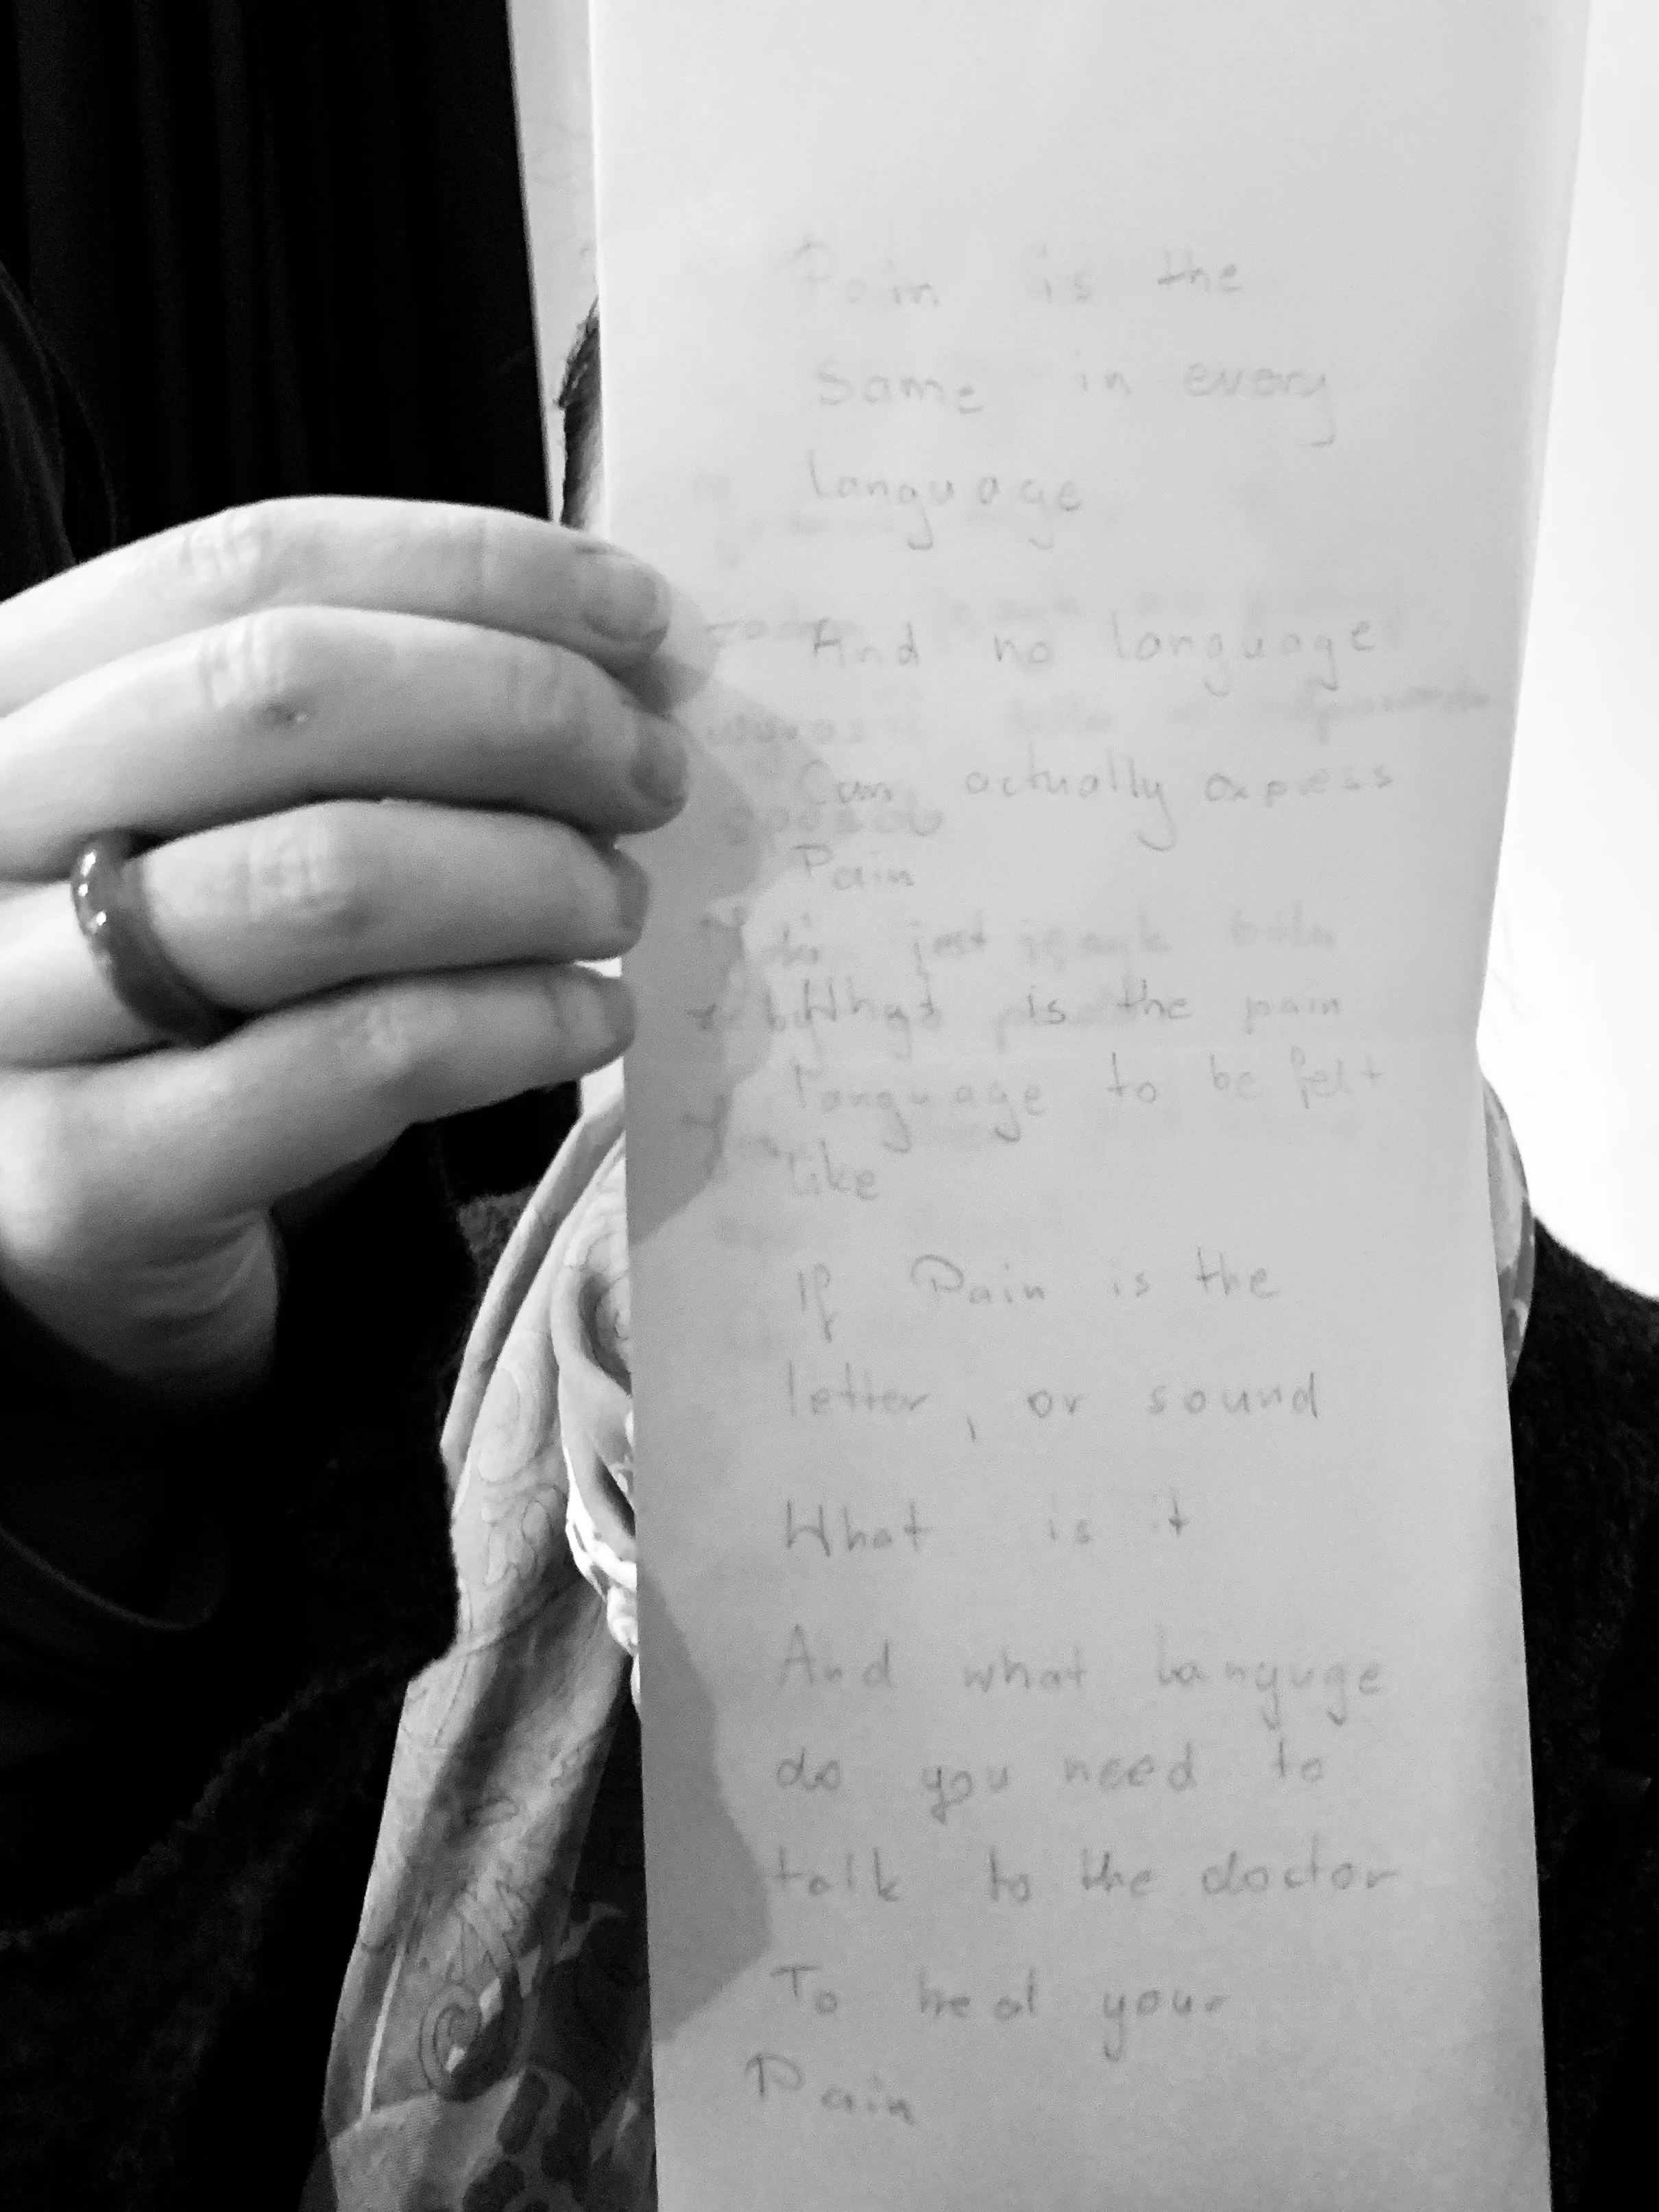 Pain is the
Same in every
language
And no language
Can actually expess
Pain
jest język bólu
What is the pain
language to be felt
like
If Pain is the
letter, or sound
What is it
And what languge
do you need to
talk to the doctor
To heal your
Pain